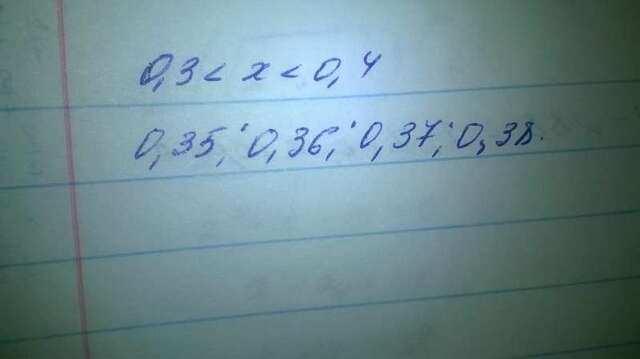 0,3 < x < 0,4
0,35; 0,36; 0,37; 0,38.